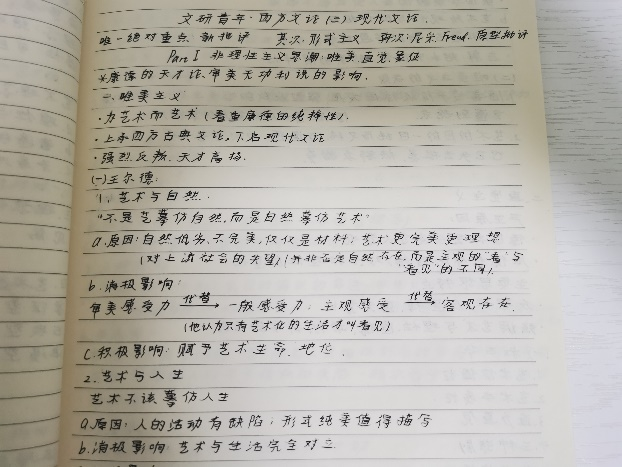 文研育年·西方文论(二)现代文论.
唯一绝对重点:新批评 其次:形式主义 再次:尼采、Freud、原型批评
Part I 非理性主义思潮:唯美、直觉、象征
*康德的天才论、审美无功利说的影响.
一、唯美主义
·为艺术而艺术(看重康德的纯粹性).
·上承西方古典文论,下启现代文论
·强烈反叛、天才高扬.
(一)王尔德:
1、艺术与自然.
"不是艺摹仿自然,而是自然摹仿艺术"
a.原因:自然低劣、不完美,仅仅是材料;艺术更完美更理想
(对上流社会的失望)(并非在是自然存在,而是主观的"看"与
"看见"的不同)
b.消极影响:
审美感受力 代替→ 一般感受力;主观感受 代替→ 客观存在.
(他认为只有艺术化的生活才叫看见)
c.积极影响:赋予艺术生命、地位.
2.艺术与人生
艺术不该摹仿人生
a.原因:人的活动有缺陷;形式纯美值得描写
b.消极影响:艺术与生活完全对立